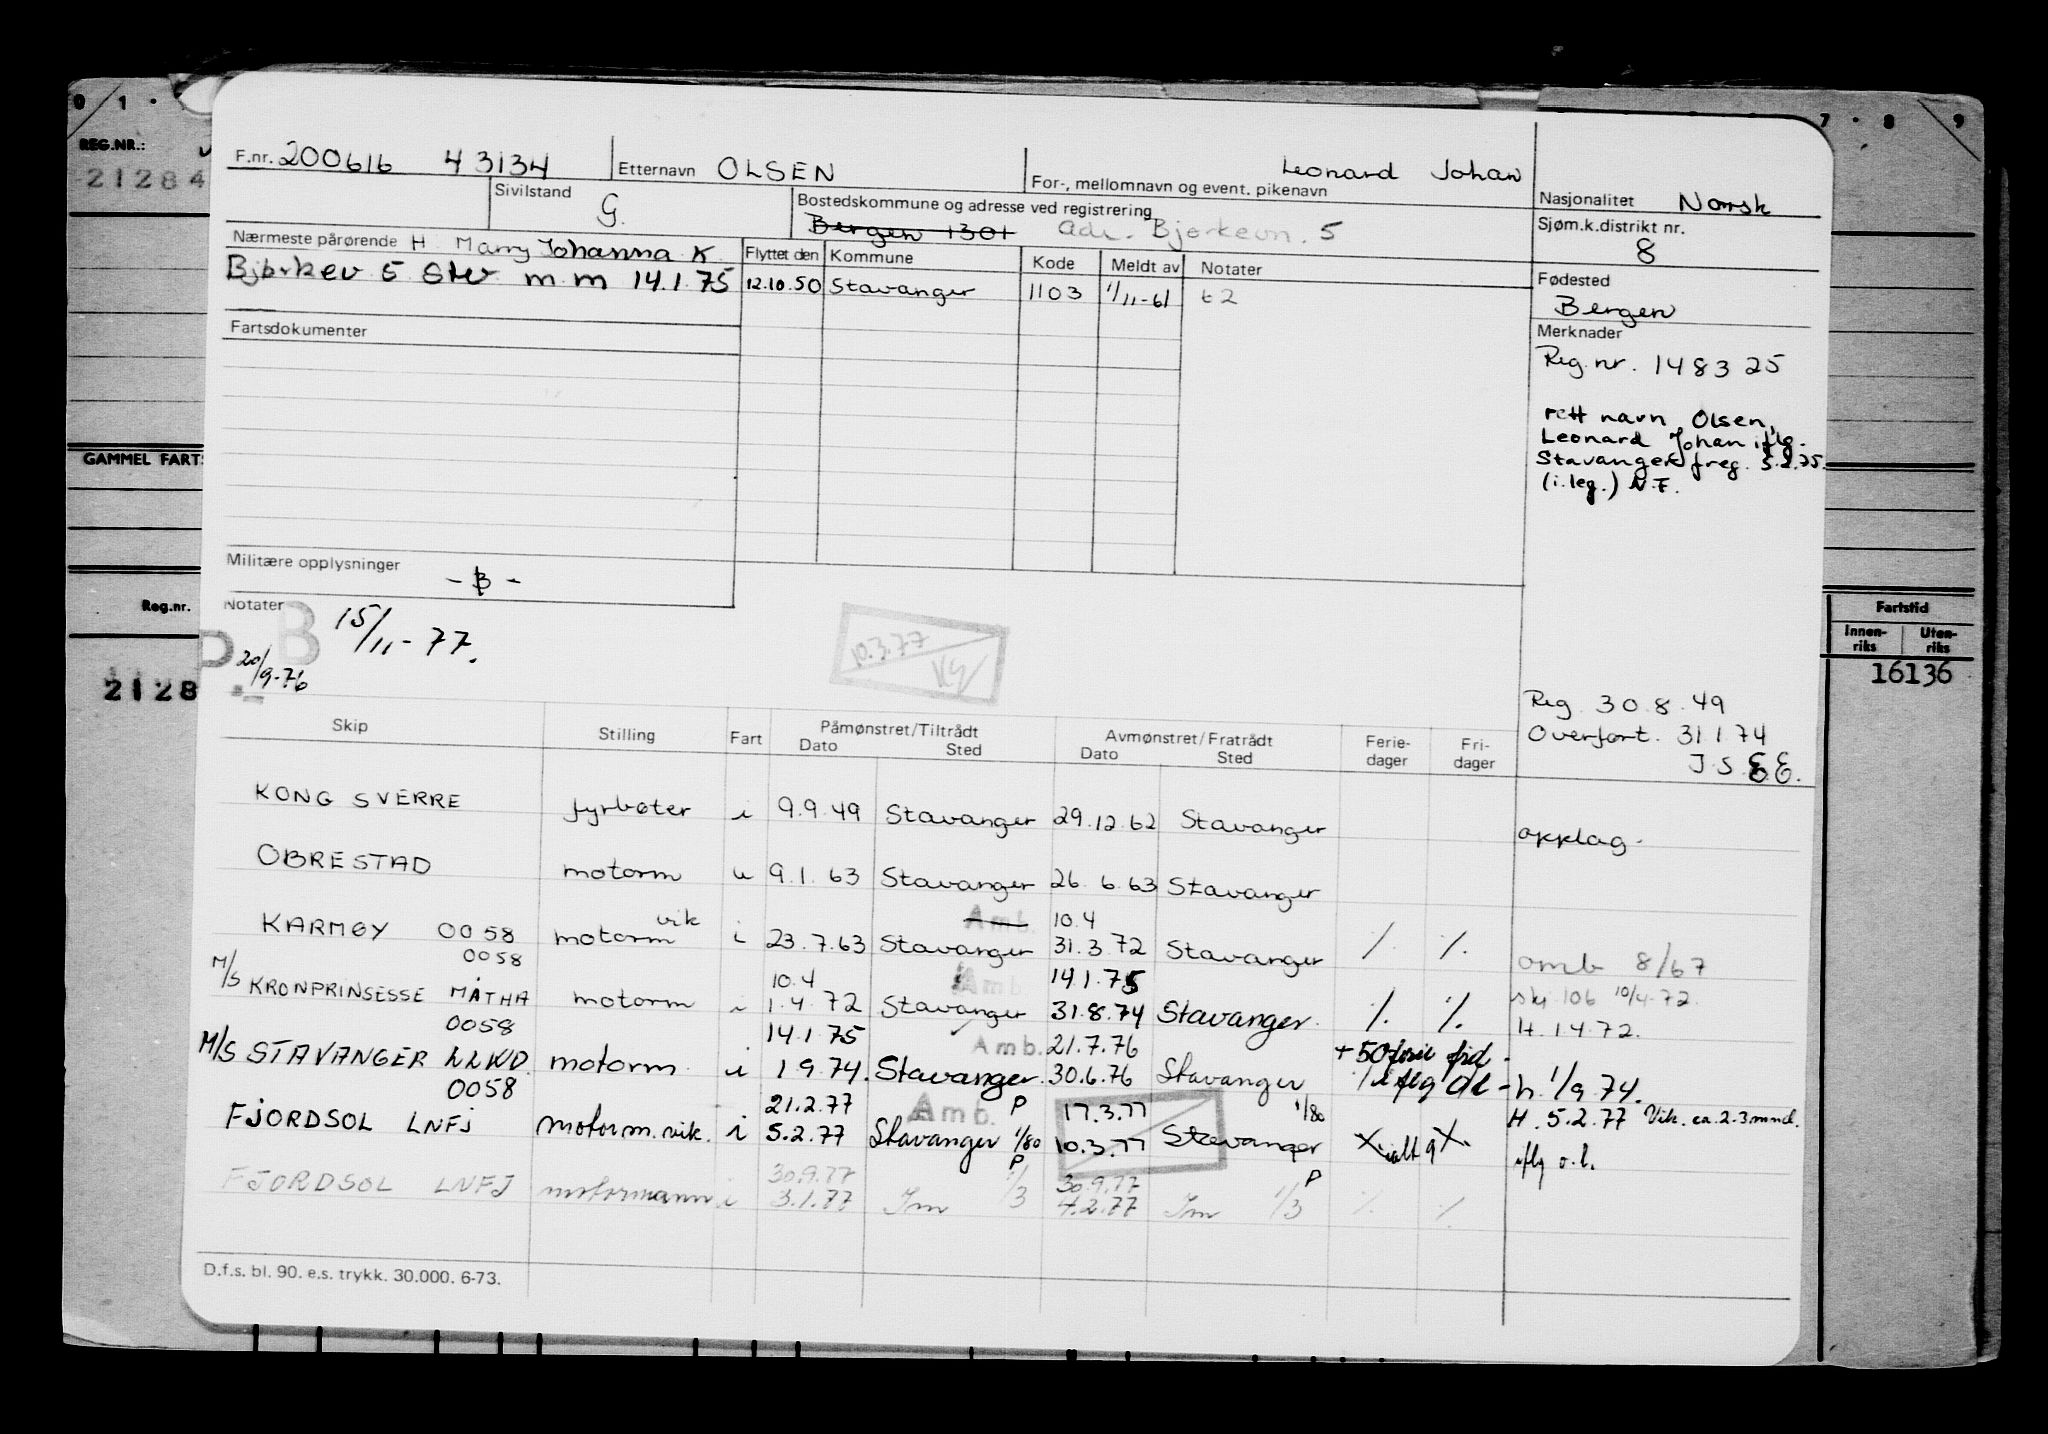 0 1 · 7 · 8 9
REG.NR.:
21284
F.nr. 200616 43134 Etternavn OLSEN For-, mellomnavn og event. pikenavn Leonard Johan
Sivilstand G. Bostedskommune og adresse ved registrering Bergen 1301 adr. Bjerkevn. 5
Nasjonalitet Norsk
Sjøm.k.distrikt nr. 8
Nærmeste pårørende H Marry Johanna K
Bjerkev 5 Stv m m 14.1.75
Flyttet den Kommune Kode Meldt av Notater
12.10.50 Stavanger 1103 1/11-61 t2
Fødested
Bergen
Fartsdokumenter
Merknader
Reg.nr. 148325
rett navn Olsen,
Leonard Johan iflg.
Stavanger freg. 5.2.75.
(i.leg.) N.F.
GAMMEL FARTS
Militære opplysninger - B -
Reg.nr.
2128
Notater B 15/11-77.
P 20/9-76
10.3.77
Fartstid
Innen-riks Uten-riks
16136
Reg. 30.8.49
Overført. 31 1 74
J.S. EE.
Skip Stilling Fart Påmønstret/Tiltrådt Avmønstret/Fratrådt Ferie-dager Fri-dager
Dato Sted Dato Sted
KONG SVERRE fyrbøter i 9.9.49 Stavanger 29.12.62 Stavanger opplag.
OBRESTAD motorm u 9.1.63 Stavanger 26.6.63 Stavanger
vik Amb. 10.4
KARMØY 0058 motorm i 23.7.63 Stavanger 31.3.72 Stavanger /. /. omb 8/67
0058 10.4 Amb 14.1.75
M/S KRONPRINSESSE MÄTHA motorm i 1.4.72 Stavanger 31.8.74 Stavanger. /. /. skj 106 10/4-72.
H. 1 4 72.
0058 14.1.75 Amb. 21.7.76 + 50 ferie frid -
M/S STAVANGER LLWD motorm. i 1.9.74. Stavanger. 30.6.76 Stavanger iflg Ol - h. 1/9.74.
0058 21.2.77 Amb. P 17.3.77 1/80
FJORDSOL LNFJ motorm.vik. i 5.2.77 Stavanger 1/80 10.3.77 Stavanger X ialt 9 X. H. 5.2.77 Vik. ca. 2-3 mnd.
iflg o.l.
30.9.77 P 1/3 30.9.77 P
FJORDSOL LNFJ motormann i 3.1.77 Im 4.2.77 Im 1/3 /. /.
D.f.s. bl. 90. e.s. trykk. 30.000. 6-73.